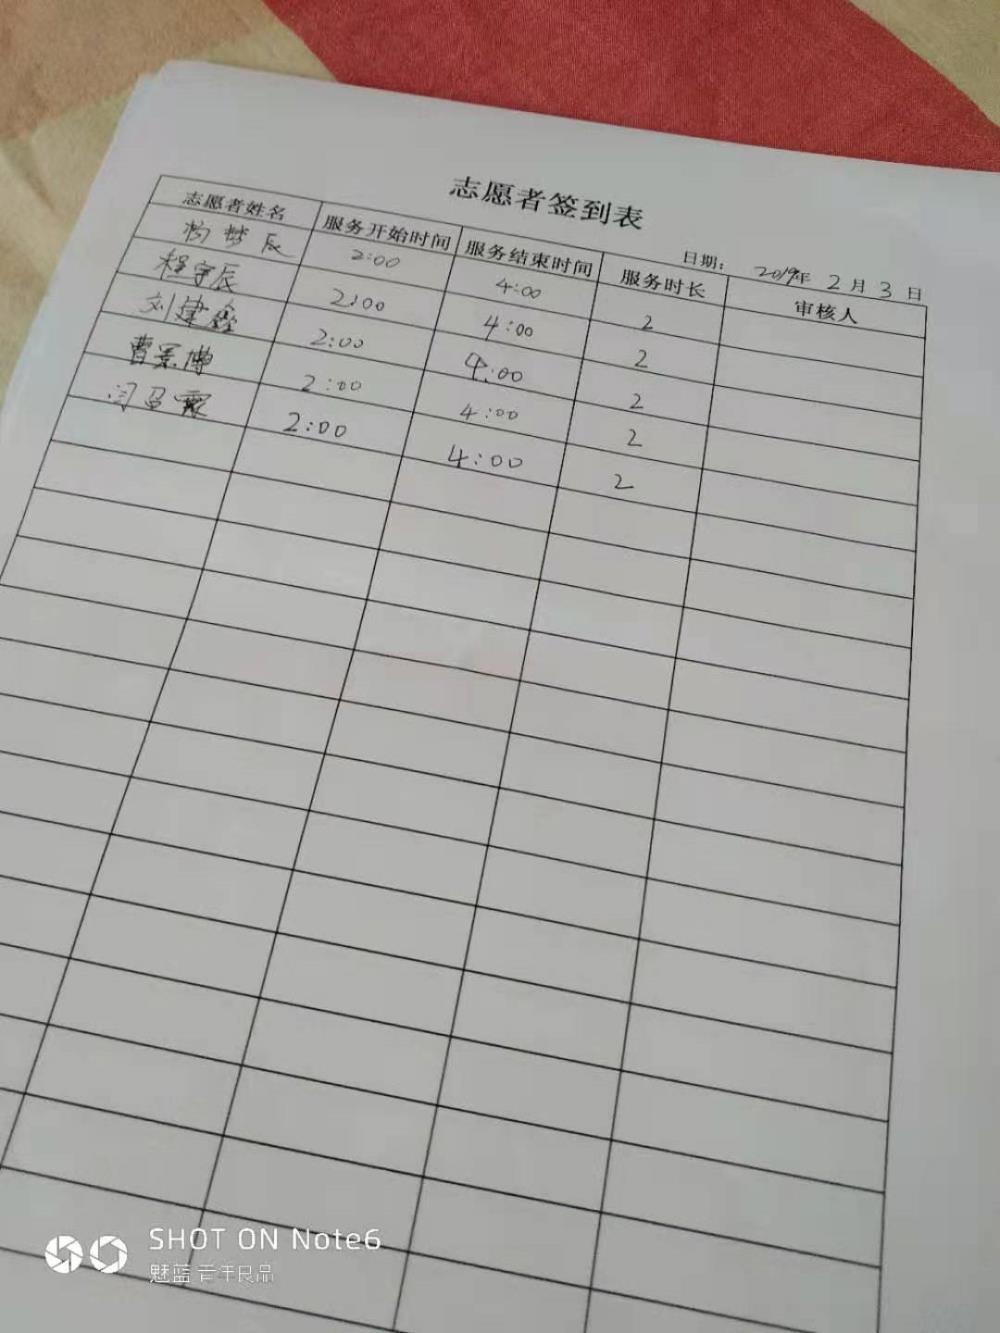 志愿者签到表
日期: 2019年 2月 3日
志愿者姓名 服务开始时间 服务结束时间 服务时长 审核人
杨梦辰 2:00 4:00 2
程宇辰 2:00 4:00 2
刘建鑫 2:00 4:00 2
曹景博 2:00 4:00 2
闫 2:00 4:00 2
SHOT ON Note6
魅蓝 青年良品